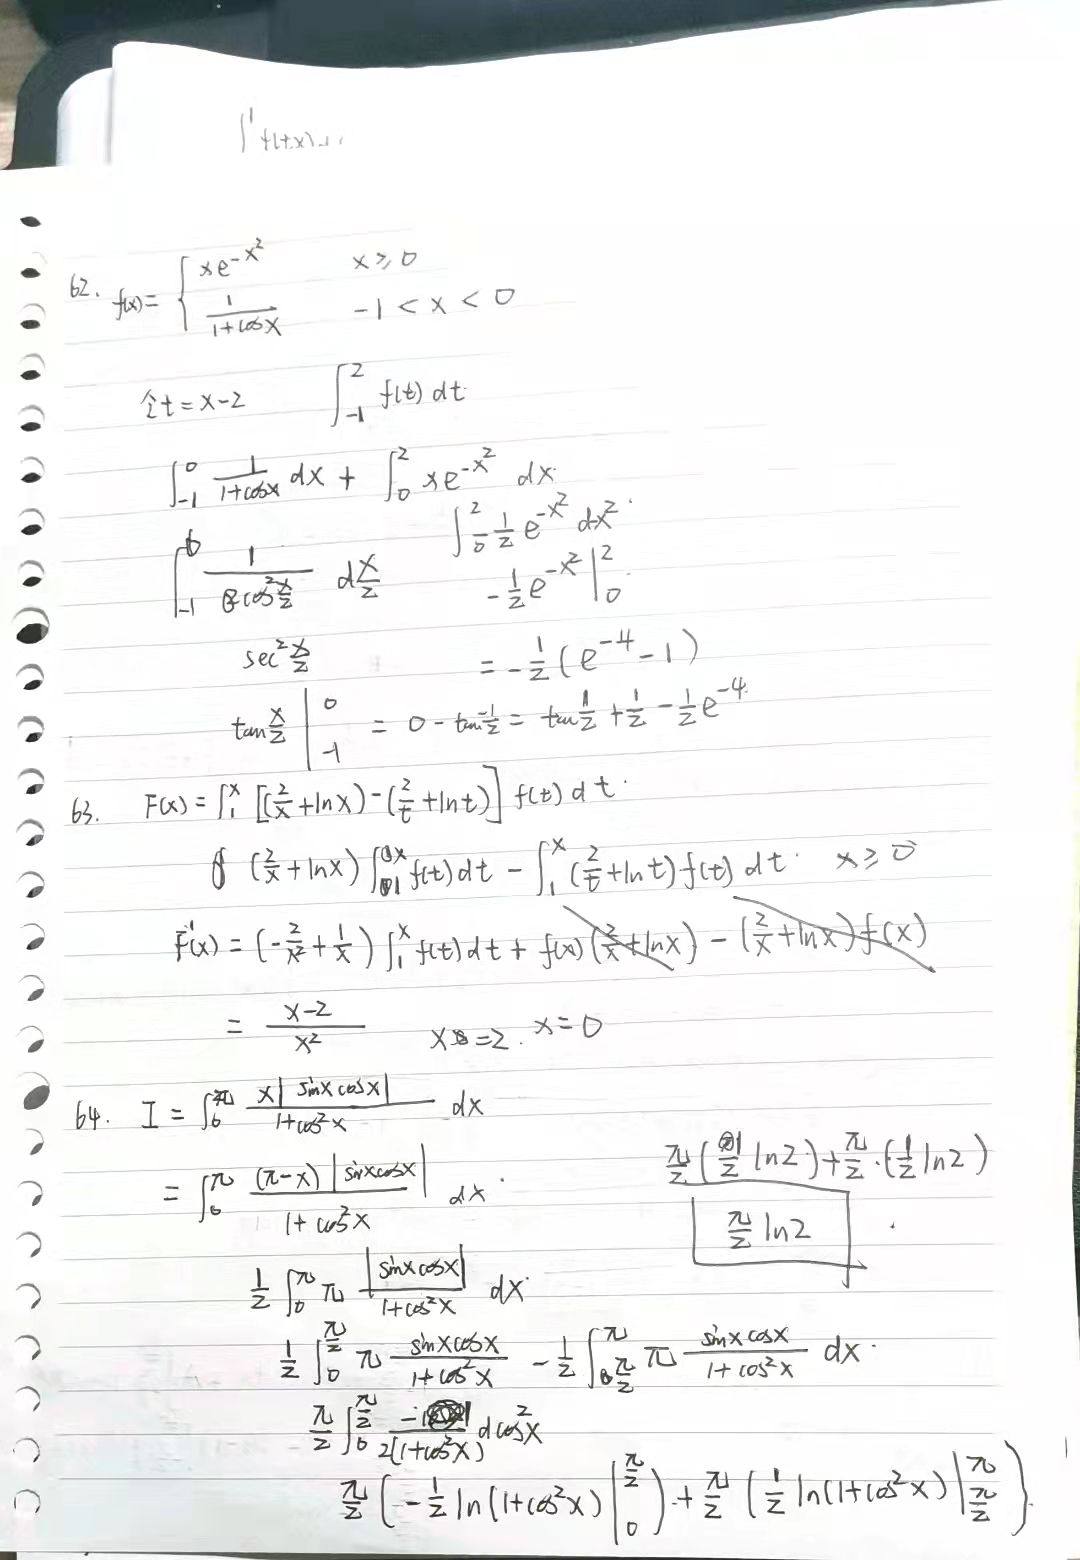 ∫¹ f(tx)
62. f(x) = { xe^{-x²}    x ≥ 0
1/(1+cosx)    -1 < x < 0
令t = x-2    ∫_{-1}^{2} f(t) dt
∫_{-1}^{0} 1/(1+cosx) dx + ∫_{0}^{2} xe^{-x²} dx
∫_{0}^{2} 1/2 e^{-x²} dx²
∫_{-1}^{0} 1/(cos² x/2) d x/2    -1/2 e^{-x²} |_{0}^{2}
sec² x/2    = -1/2 (e^{-4} - 1)
tan x/2 |_{-1}^{0} = 0 - tan -1/2 = tan 1/2 + 1/2 - 1/2 e^{-4}
63. F(x) = ∫_{1}^{x} [(2/x + lnx) - (2/t + lnt)] f(t) dt
(2/x + lnx) ∫_{1}^{x} f(t) dt - ∫_{1}^{x} (2/t + lnt) f(t) dt    x ≥ 0
F'(x) = (-2/x² + 1/x) ∫_{1}^{x} f(t) dt + f(x) (2/x + lnx) - (2/x + lnx) f(x)
= (x-2)/x²    x = 2.  x = 0
64. I = ∫_{0}^{π} x|sinx cosx|/(1+cos²x) dx
= ∫_{0}^{π} (π-x)|sinxcosx|/(1+cos²x) dx
1/2 ∫_{0}^{π} π |sinx cosx|/(1+cos²x) dx
1/2 ∫_{0}^{π/2} π sinxcosx/(1+cos²x) - 1/2 ∫_{π/2}^{π} π sinx cosx/(1+cos²x) dx
π/2 ∫_{0}^{π/2} -1/(2(1+cos²x)) dcos²x
π/2 (-1/2 ln(1+cos²x) |_{0}^{π/2}) + π/2 (1/2 ln(1+cos²x) |_{π/2}^{π})
π/2 (1/2 ln2) + π/2 · (1/2 ln2)
π/2 ln2